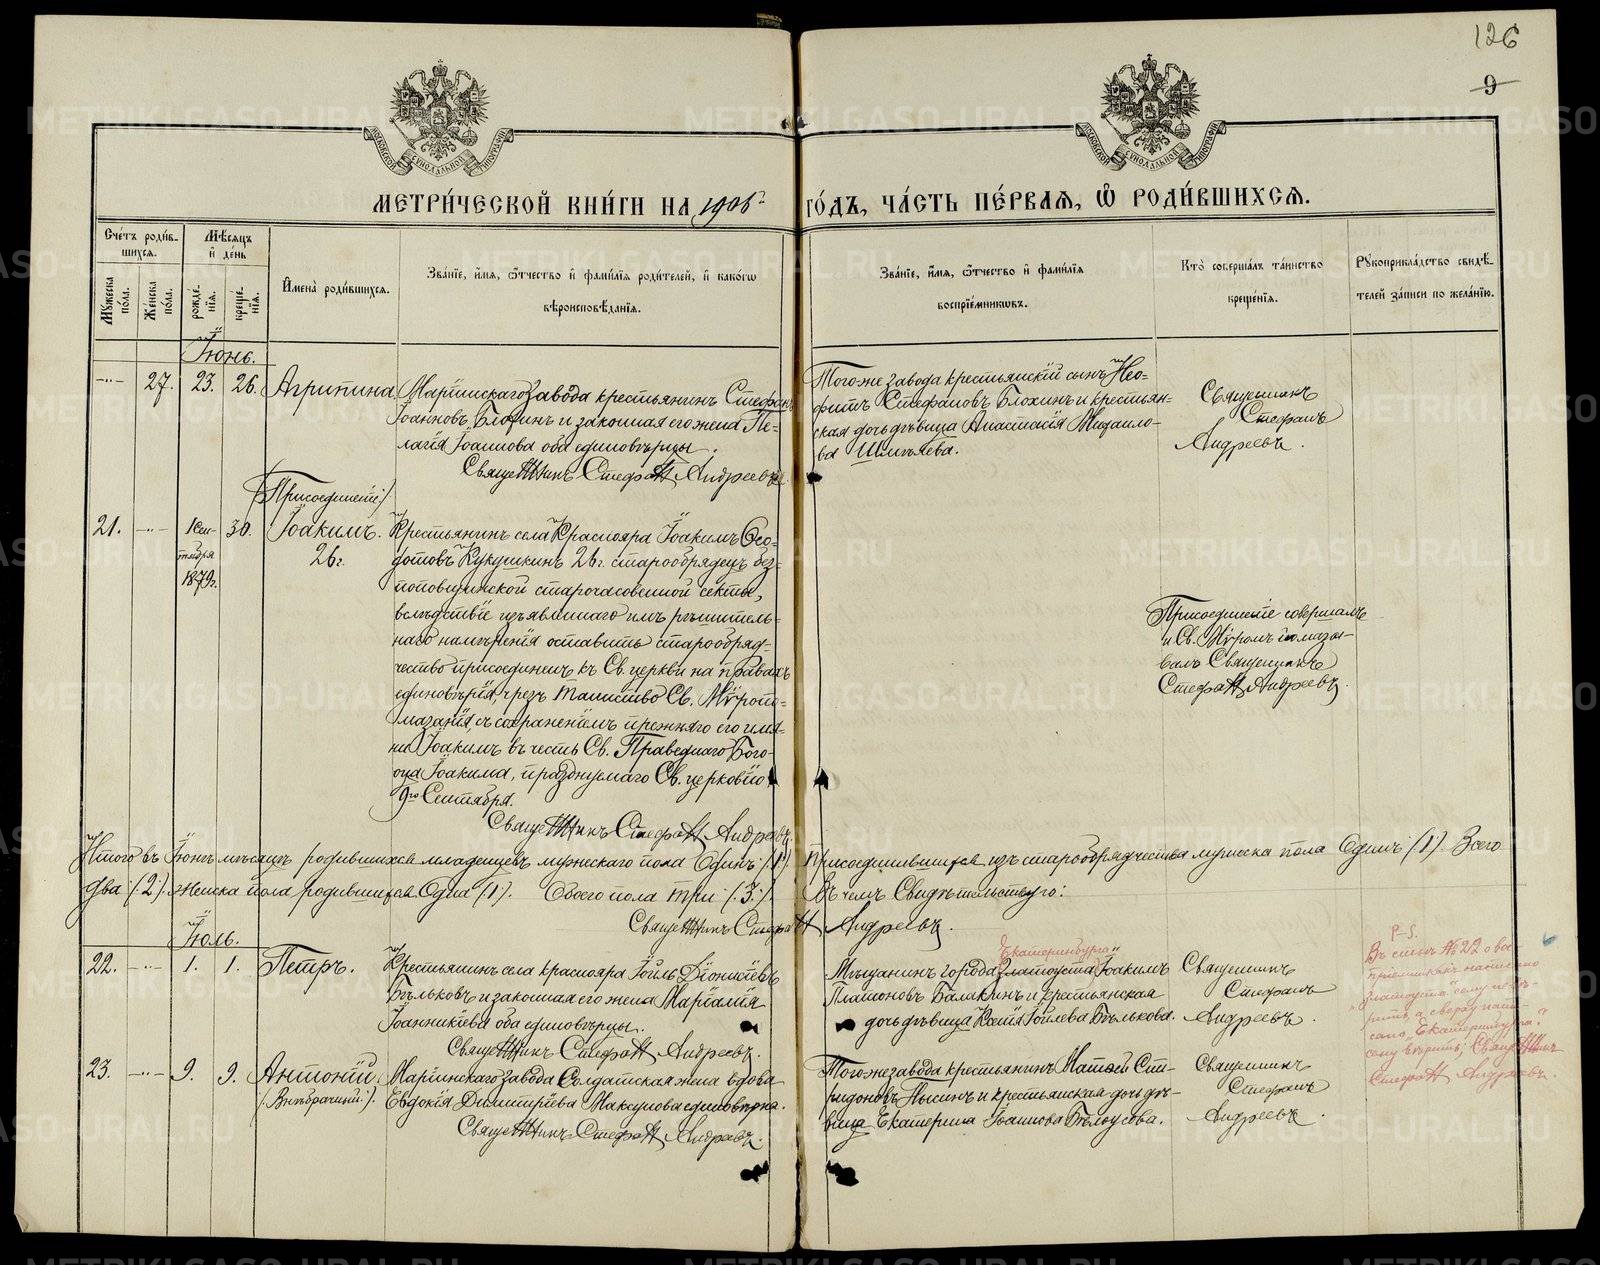 126
9
МЕТРИ́ЧЕСКОЙ КНИ́ГИ НА 1906 ГО́ДЪ, ЧА́СТЬ ПЕ́РВАЯ, Ѡ҆ РОДИ́ВШИХСЯ.
Сче́тъ роди́в-
шихся.
Мѣ́сяцъ
и҆ де́нь
Мꙋ́жеска по́ла.
Же́нска по́ла.
рожде-
нїѧ.
креще-
нїѧ.
И҆мена̀ роди́вшихся.
Зва́нїе, и҆́мя, ѻ҆́тчество и҆ фами́лїя роди́телей, и҆ како́гѡ
вѣроисповѣ́данїя.
Зва́нїе, и҆́мя, ѻ҆́тчество и҆ фами́лїя
воспрїе́мникѡвъ.
Кто̀ соверша́лъ та́инство
креще́нїя.
Рꙋкоприкла́дство свидѣ́-
телей за́писи по жела́нїю.
Іюнь.
-"- 27. 23. 26. Агрипина
Маріинскаго завода крестьянинъ Стефанъ
Іоанновъ Блохинъ и законная его жена Пе-
лагія Іоаннова оба единовѣрцы.
Священникъ Стефанъ Андреевъ
Того же завода крестьянскій сынъ Нео-
фитъ Стефановъ Блохинъ и крестьян-
ская дочь дѣвица Анастасія Михаило-
ва
Священникъ
Стефанъ
Андреевъ.
(Присоединеніе)
21. -"- 1 Сен-
тября
1879г.
30. Іоакимъ.
26 г.
Крестьянинъ села Краснояра Іоакимъ Ѳео-
дотовъ Кукушкинъ 26 г. старообрядецъ без-
поповщинской старочасовенной секты,
вслѣдствіе изъявленнаго имъ рѣшитель-
наго намѣренія оставить старообряд-
чество присоединенъ къ Св. церкви на правахъ
единовѣрія, чрезъ таинство Св. Мѵропо-
мазанія, съ сохраненіемъ прежняго его име-
ни Іоакимъ въ честь Св. Праведнаго Бого-
отца Іоакима, празднуемаго Св. церковію
9го Сентября.
Священникъ Стефанъ Андреевъ
Присоединеніе совершалъ
и Св. Мѵромъ помазы-
валъ Священникъ
Стефанъ Андреевъ.
Итого въ Іюнѣ мѣсяцѣ родившихся младенцевъ мужескаго пола Одинъ (1) Присоединившихся изъ старообрядчества мужеска пола Одинъ (1) Всего
два (2) женска пола родившихся Одна (1). Обоего пола три (3). Въ чемъ Свидѣтельствую:
Священникъ Стефанъ Андреевъ.
Іюль.
22. -"- 1. 1. Петръ.
Крестьянинъ села краснояра Іоиль Діонисіевъ
Бѣльковъ и законная его жена Маріамія
Іоанникіева оба единовѣрцы.
Священникъ Стефанъ Андреевъ.
"Екатеринбурга"
Мѣщанинъ города Златоуста Іоакимъ
Платоновъ Балакинъ и крестьянская
дочь дѣвица Ксенія Іоилева Бѣлькова.
Священникъ
Стефанъ
Андреевъ.
P.S.
Въ статьѣ № 22 о вос-
пріемникѣ написано
"Златоуста" сему не вѣ-
рить, а сверху напи-
сано "Екатеринбурга"
сему вѣрить; Священникъ
Стефанъ Андреевъ.
23. -"- 9. 9. Антоній
(Внѣбрачный).
Маріинскаго завода Солдатская жена вдова
Евдокія Димитріева Максунова единовѣрка.
Священникъ Стефанъ Андреевъ.
Того же завода крестьянинъ Матѳей Спи-
ридоновъ Пысинъ и крестьянская дочь дѣ-
вица Екатерина Іоаннова Бѣлоусова.
Священникъ
Стефанъ
Андреевъ.
METRIKI.GASO-URAL.RU